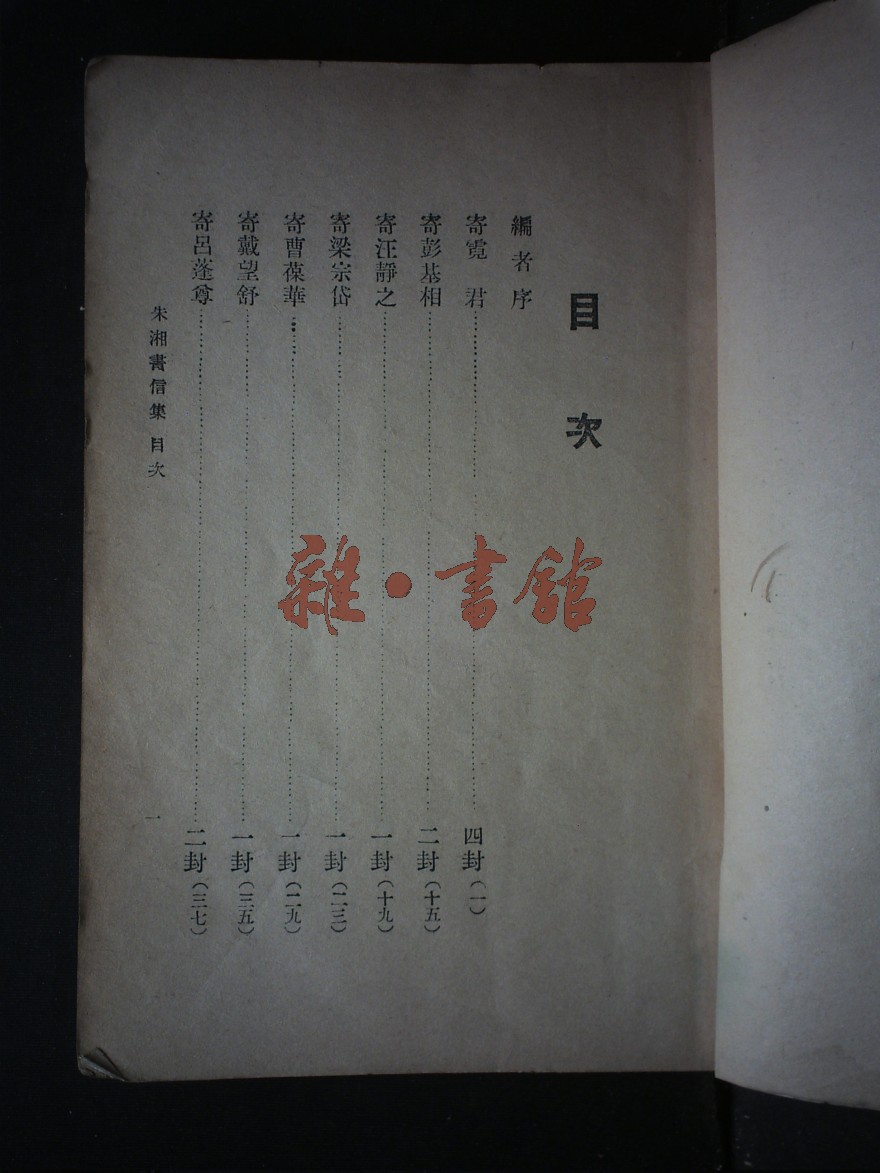 目次
編者序
寄霓君……四封(一)
寄彭基相……二封(十五)
寄汪靜之……一封(十九)
寄梁宗岱……一封(二三)
寄曹葆華……一封(二九)
寄戴望舒……一封(三五)
寄呂蓬尊……二封(三七)
朱湘書信集 目次
一
雜·書館